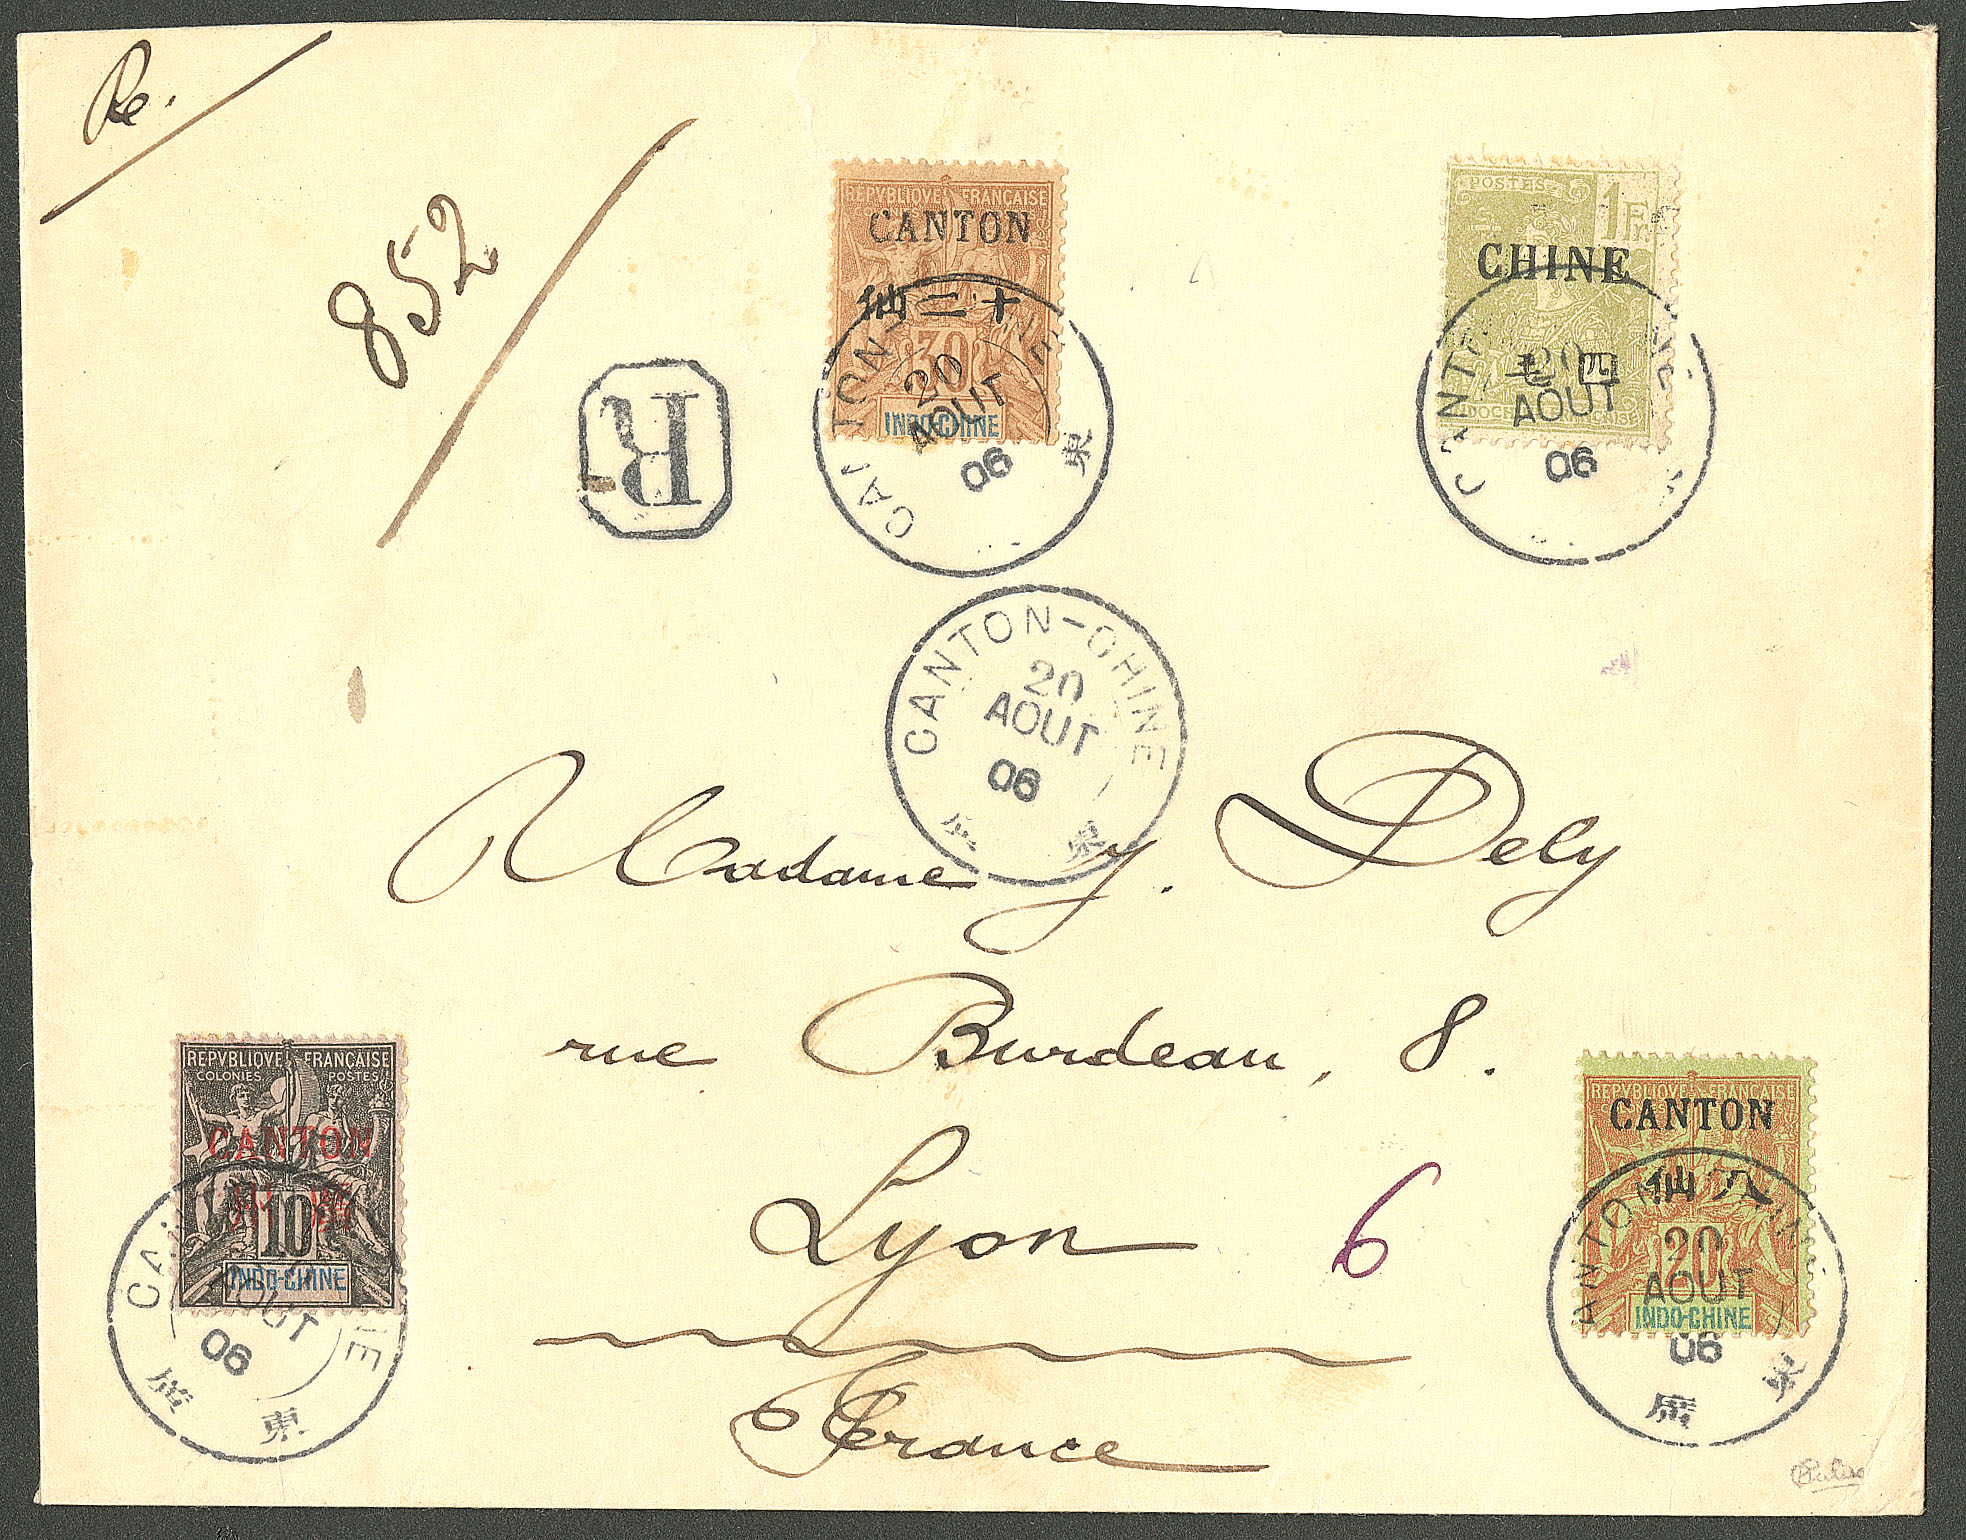 Re.
852
R
REPVBLIQVE FRANÇAISE
CANTON
仙二十
30
INDO-CHINE
CANTON-CHINE
20
AOUT
06
東
POSTES
1Fr.
CHINE
毫四
INDOCHINE FRANÇAISE
20
AOUT
06
CANTON-CHINE
20
AOUT
06
廣 東
Madame J. Dely
rue Burdeau, 8.
Lyon
6
France
REPVBLIQVE FRANÇAISE
COLONIES POSTES
CANTON
10
INDO-CHINE
AOUT
06
廣 東
REPVBLIQVE FRANÇAISE
CANTON
仙八
20
AOUT
20
INDO-CHINE
06
廣 東